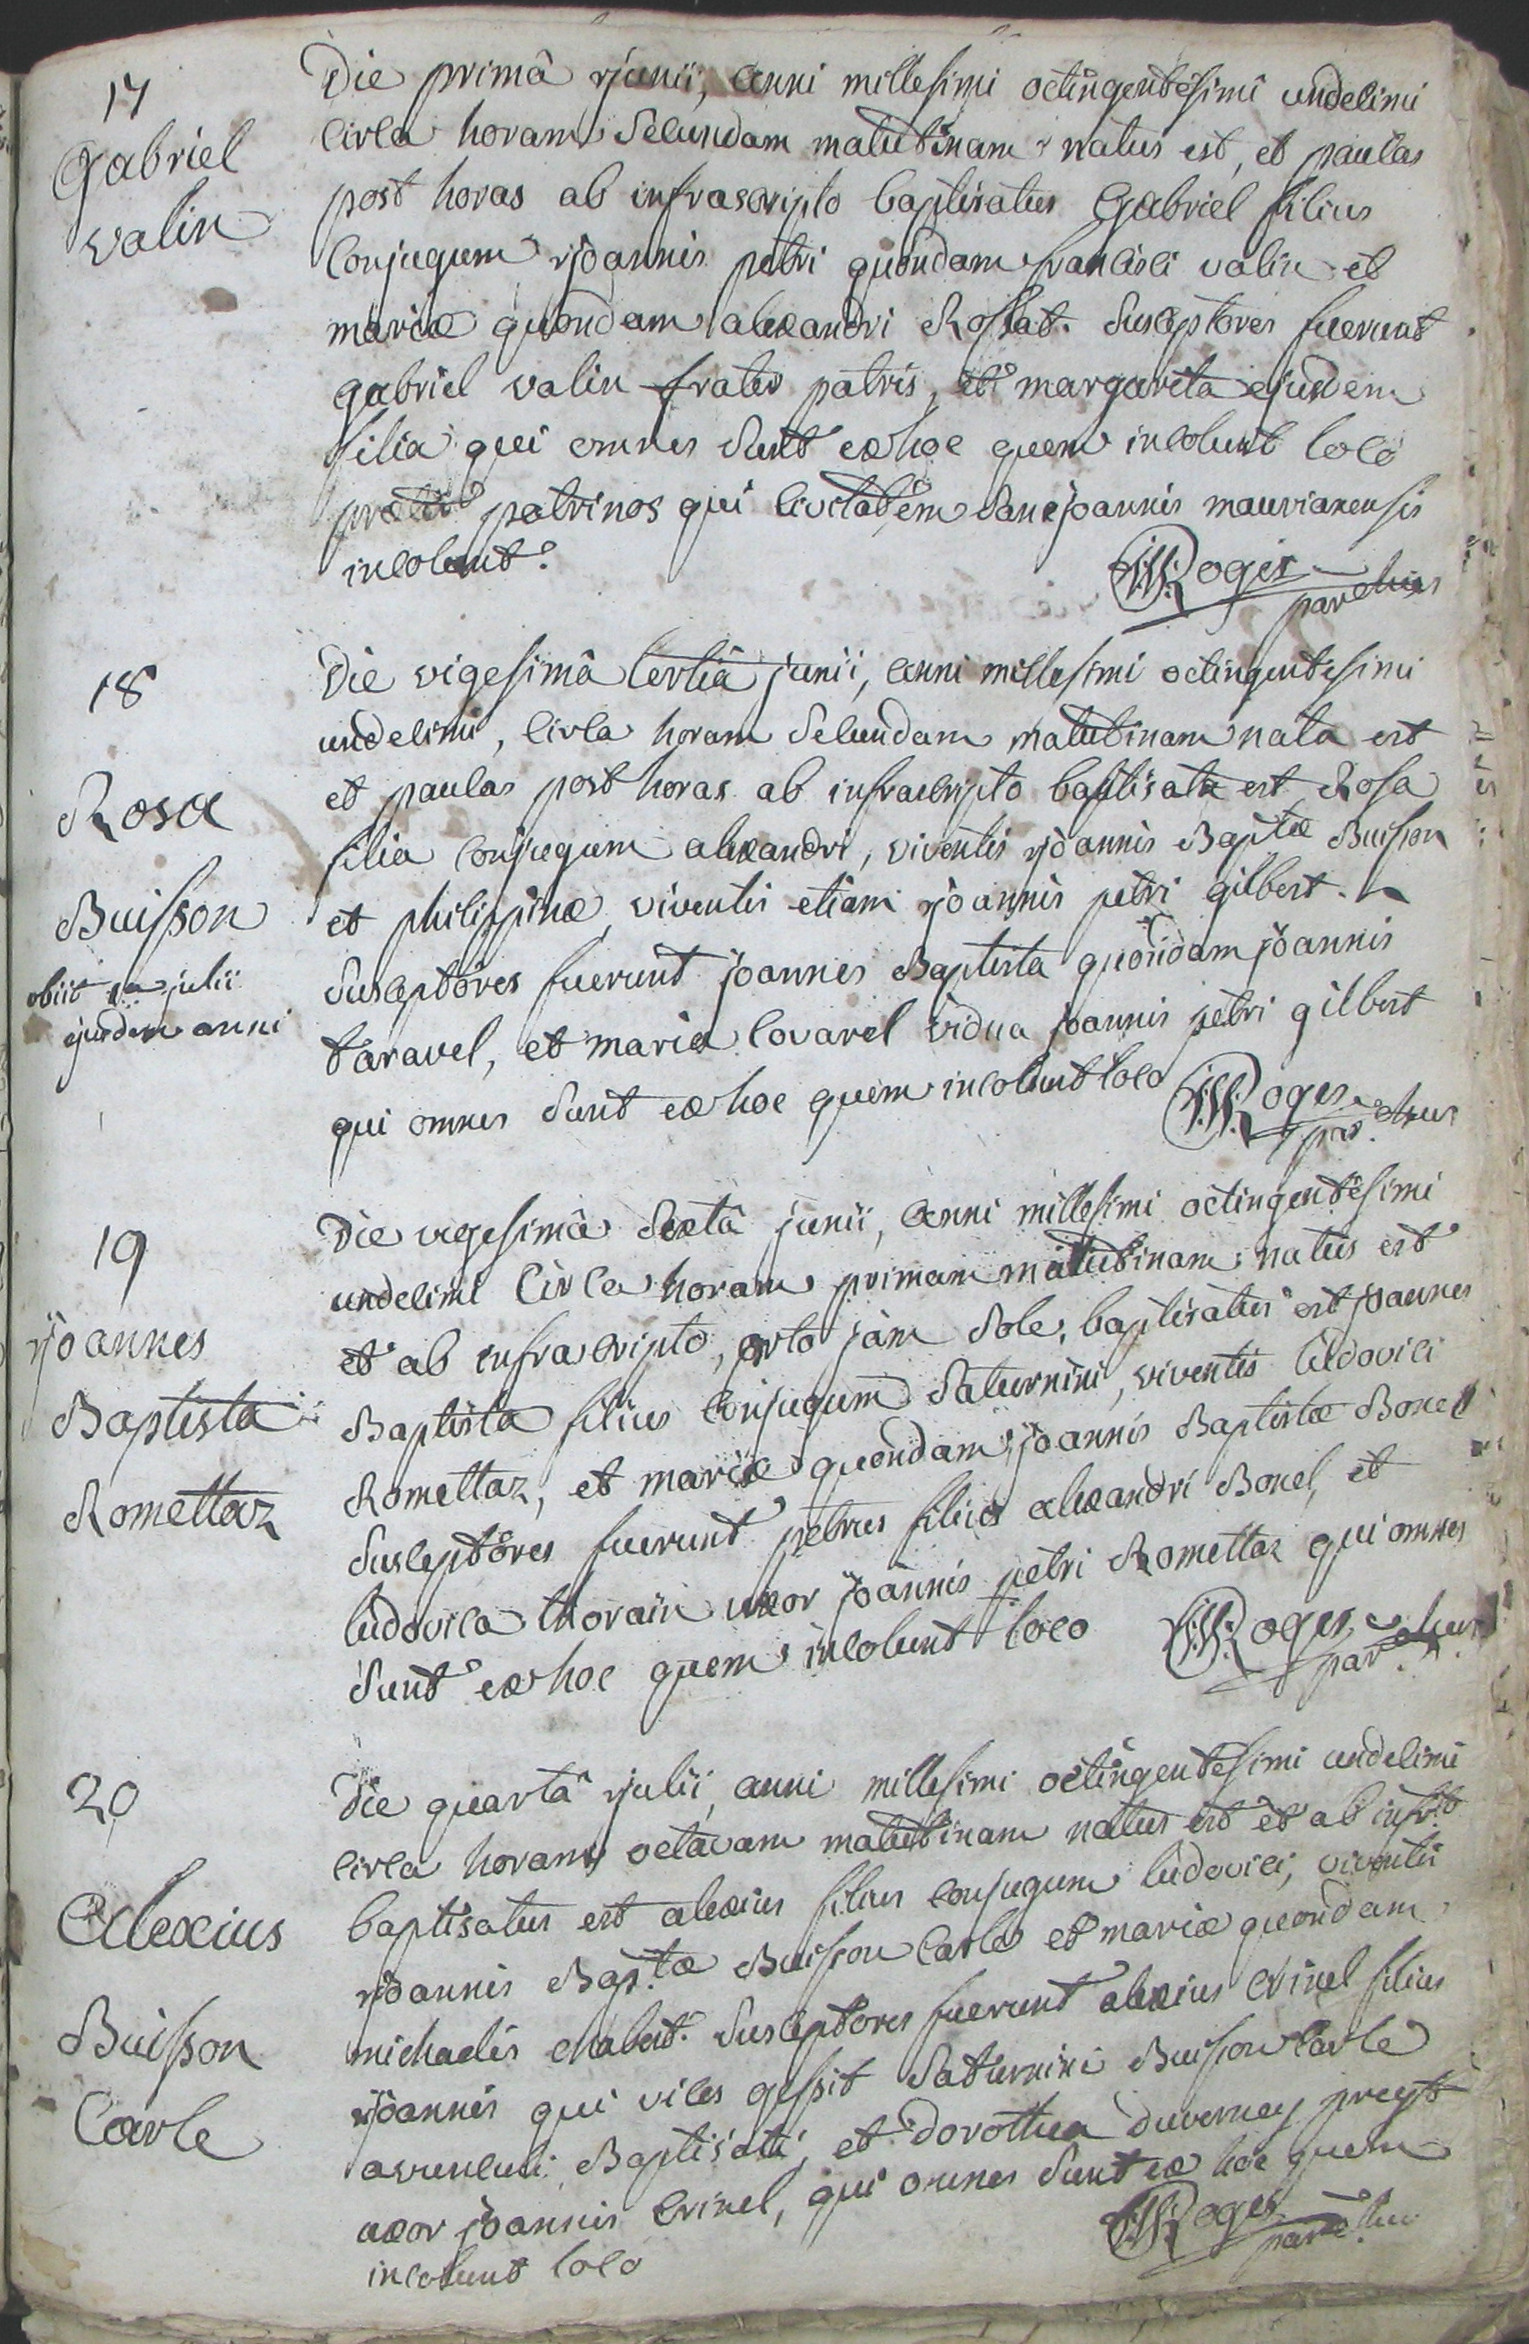 17
Gabriel
valin
Die primâ junii, anni millesimi octingentesimi undecimi
circa horam Secundam matutinam natus est, et paucas
post horas ab infrascripto baptisatus Gabriel filius
Conjugum joannis petri quondam francisci valin et
mariæ quondam alexandri Rostat. Susceptores fuerunt
gabriel valin frater patris, et margarita ejusdem
filia qui omnes Sunt ex hoc quem incolunt loco
præter patrinos qui Civitatem Sancjoannis maurianensis
incolunt.
Roges
parochus
18
Rosa
Buisson
obiit julii
ejusdem anni
Die vigesimâ tertiâ junii, anni millesimi octingentesimi
undecimi, circa horam Secundam matutinam nata est
et paucas post horas ab infrascripto baptisata est Rosa
filia conjugum alexandri, viventis joannis Baptæ Buisson
et philippinæ viventis etiam joannis petri gilbert.
Susceptores fuerunt joannes Baptista quondam joannis
taravel, et maria Covarel vidua joannis petri gilbert
qui omnes Sunt ex hoc quem incolunt loco
Roges
parochus
19
joannes
Baptista
Romettaz
Die vigesimâ Sextâ junii, anni millesimi octingentesimi
undecimi Circa horam primam matutinam natus est
et ab infrascripto, orto jam Sole, baptisatus est joannes
Baptista filius Conjugum Saturnini, viventis ludovici
Romettaz, et mariæ quondam joannis Baptistæ Bonel
Susceptores fuerunt petrus filius alexandri Bonel, et
ludovica thorain uxor joannis petri Romettaz qui omnes
Sunt ex hoc quem incolunt loco
Roges
parochus
20
Alexius
Buisson
Carle
Die quartâ julii, anni millesimi octingentesimi undecimi
circa horam octavam matutinam natus est et ab infrto
baptisatus est alexius filius conjugum ludovici, viventis
joannis Bap.tæ Buisson Carle et mariæ quondam
michaelis chabert. Susceptores fuerunt alexius Crinel filius
joannis qui vices gessit Saturnini Buisson Carle
avunculi Baptisati, et Dorothea duverney preyst
uxor joannis Crinel, qui omnes Sunt ex hoc quem
incolunt loco
Roges
parochus